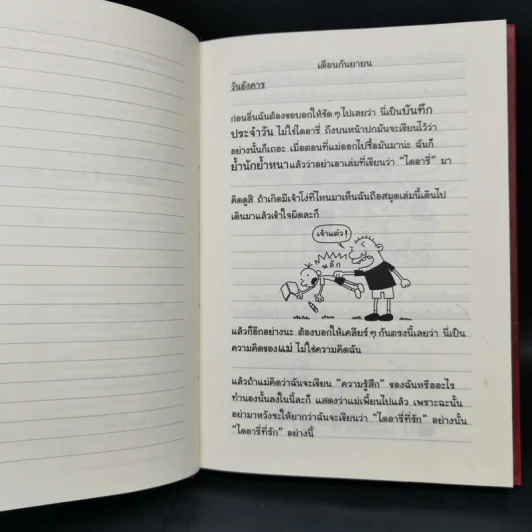 เดือนกันยายน
วันอังคาร
ก่อนอื่นฉันต้องขอบอกให้ชัด ๆ ไปเลยว่า นี่เป็นบันทึก
ประจำวัน ไม่ใช่ไดอารี่ ถึงบนหน้าปกมันจะเขียนไว้ว่า
อย่างนั้นก็เถอะ เมื่อตอนที่แม่ออกไปซื้อมันมาน่ะ ฉันก็
ย้ำนักย้ำหนาแล้วว่าอย่าเอาเล่มที่เขียนว่า "ไดอารี่" มา
คิดดูสิ ถ้าเกิดมีเจ้าโง่ที่ไหนมาเห็นฉันถือสมุดเล่มนี้เดินไป
เดินมาแล้วเข้าใจผิดละก็
เจ้าแต๋ว!
ผลัก
แล้วก็อีกอย่างนะ ต้องบอกให้เคลียร์ ๆ กันตรงนี้เลยว่า นี่เป็น
ความคิดของแม่ ไม่ใช่ความคิดฉัน
แล้วถ้าแม่คิดว่าฉันจะเขียน "ความรู้สึก" ของฉันหรืออะไร
ทำนองนั้นลงในนี้ละก็ แสดงว่าแม่เพี้ยนไปแล้ว เพราะฉะนั้น
อย่ามาหวังซะให้ยากว่าฉันจะเขียนว่า "ไดอารี่ที่รัก" อย่างนั้น
"ไดอารี่ที่รัก" อย่างนี้